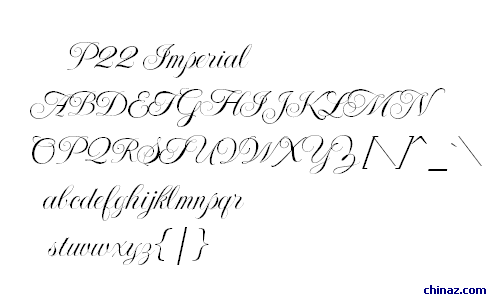 P22 Imperial
ABCDEFGHIJKLMN
OPQRSTUVWXYZ[\]^_`\
abcdefghijklmnpqr
stuvwxyz{|}
chinaz.com